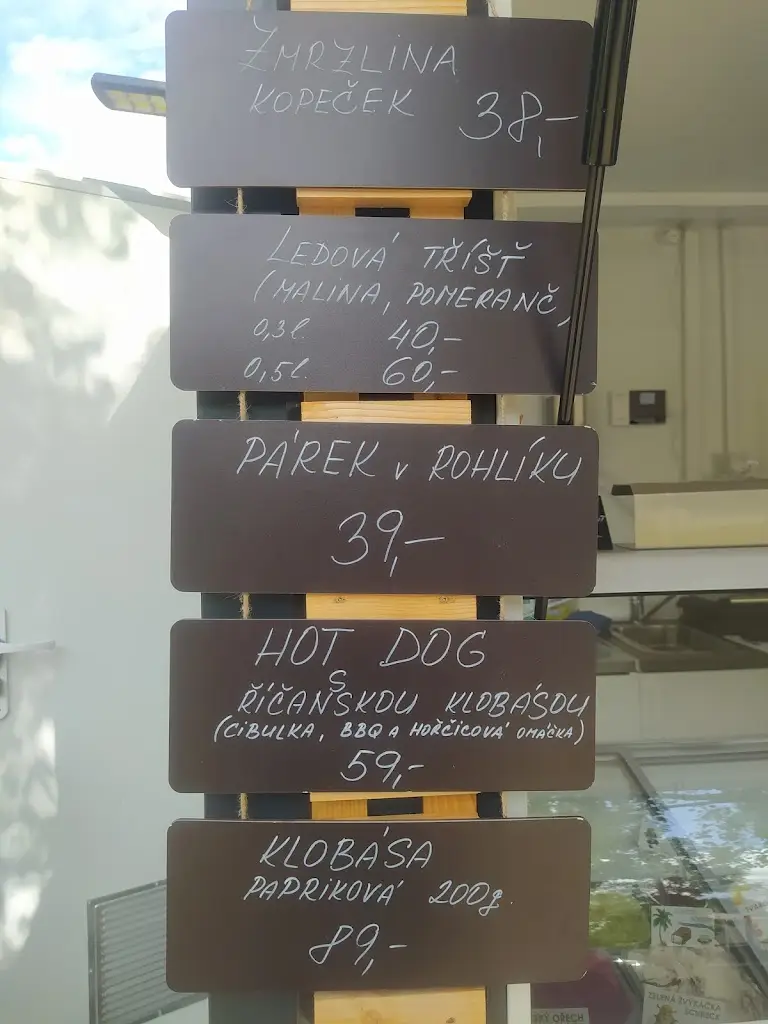 ZMRZLINA
KOPEČEK 38,-
LEDOVÁ TŘÍŠŤ
(MALINA, POMERANČ,
0,3l. 40,-
0,5l. 60,-
PÁREK v ROHLÍKU
39,-
HOT DOG
S
ŘÍČANSKOU KLOBÁSOU
(CIBULKA, BBQ A HOŘČICOVÁ OMÁČKA)
59,-
KLOBÁSA
PAPRIKOVÁ 200g.
89,-
ZELENÁ ŽVÝKAČKA
OŘECH